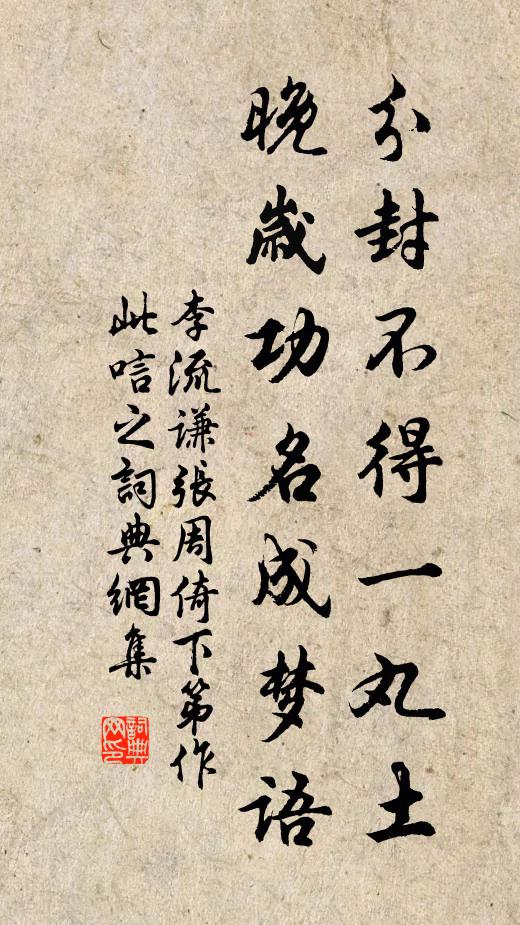 分封不得一丸土
晚歲功名成梦语
李流谦張周倚下第作
此唁之詞典網集
詞典网印